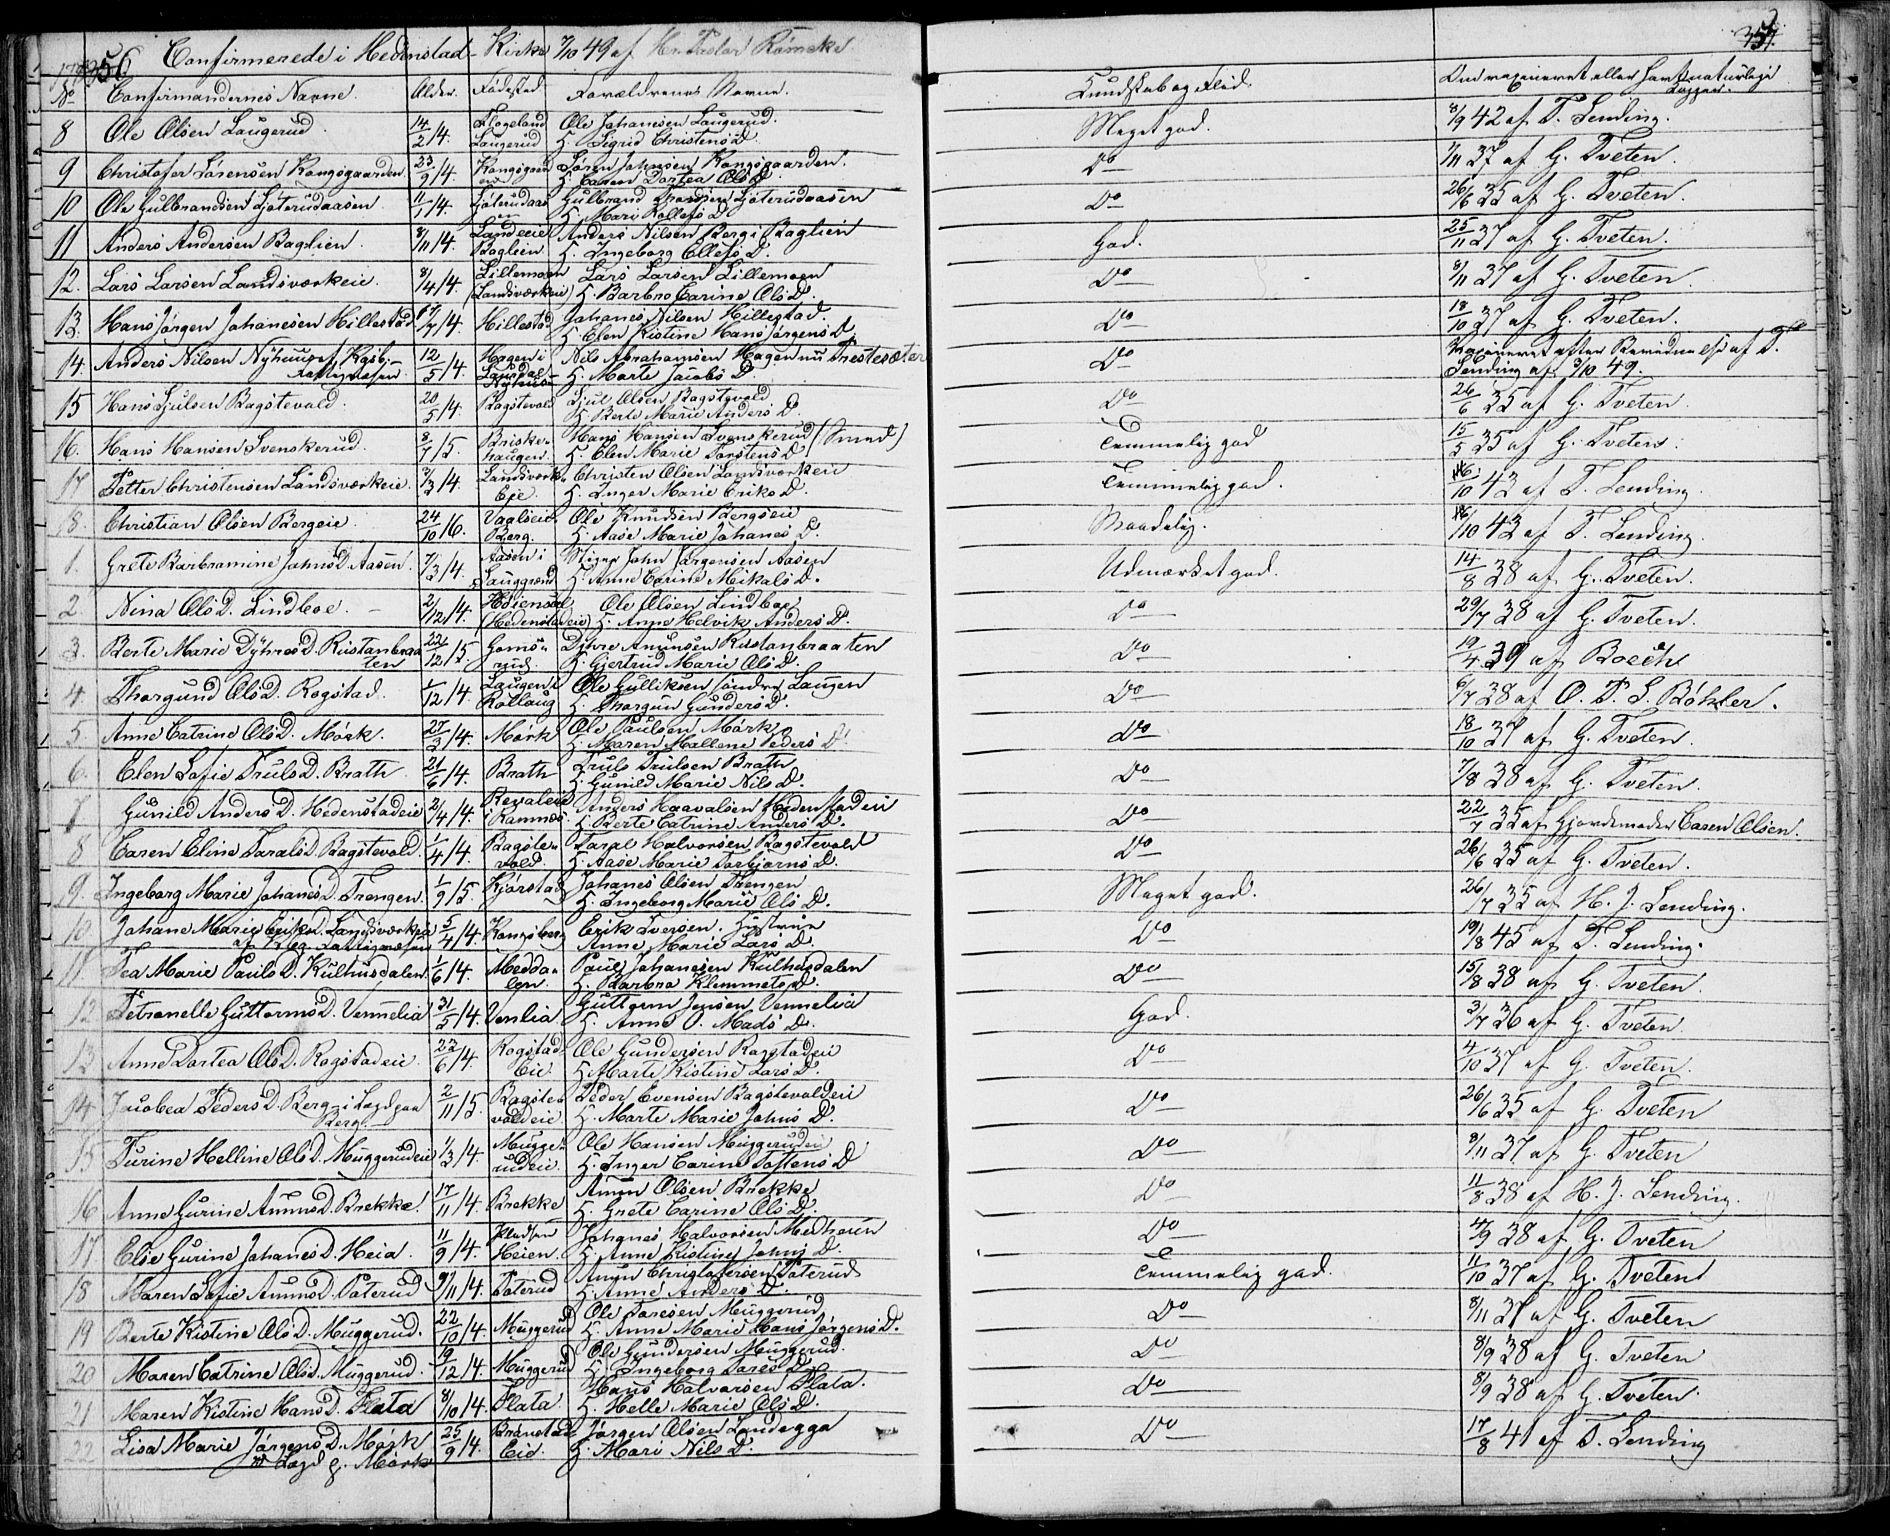 356. Confirmerede i Hedenstad Kirke 7/10 49 af Hr. Pastor
357.
No Confirmandernes Navne. Alder. Fødested. Forældrenes Navne. Kundskab og Flid. Dm vaxineret eller havt naturlige Kopper.
8 Ole Olsen Laugerud. 14/2 14. Flogeland Laugerud Ole Johanesen Laugerud. H. Sigrid Christens D. Meget god. 8/9 42 af T. Lending.
9 Christofer Sørensen Kongsgaarden. 23/9 14. Kongsgaard Søren Johnsen Kongsgaarden. H. Caren Dortea Ols D. Do 7/11 37 af G. Tveten.
10 Ole Gulbrandsen Ljøterudaasen 11/1 14. Ljøterudaas Gulbrand Ljøterudaasen H. Mari Rollefs D. Do 26/6 35 af G. Tveten.
11 Anders Andersen Baglien. 8/11 14. Baglien. Anders Nilsen Berg i Baglien H. Ingeborg Ellefs D. God. 25/11 37 af G. Tveten.
12. Lars Larsen Landsværkeie. 8/4 14. Lillemoen (Landsværkeie) Lars Larsen Lillemoen H. Barbro Carine Ols D. Do 8/11 37 af G. Tveten.
13. Hans Jørgen Johanesen Hillestad 17/7 14. Hillestad Johanes Nilsen Hillestad. H. Elen Kistine Hans Jørgens D. Do 18/10 37 af G. Tveten.
14. Anders Nilsen Nyhuus af Kgsb. Fattigvæsen 12/5 14. Hagen i Nyhuus Nils Abrahamsen Hagen nu Trestesæter H. Marte Jacobs D. Do Vaxineret efter af T. Lending af 3/10 49.
15 Hans Ljulsen Bagstevold. 20/5 14. Bagstevold Ljul Olsen Bagstevold H. Berte Marie Anders D. Do 26/6 35 af G. Tveten.
16. Hans Hansen Svenskerud. 8/7 15. Briskehaugen. Hans Hansen Svenskerud (Smed) H. Elen Marie Torstens D. Temmelig god 15/5 35 af G. Tveten.
17 Petter Christensen Landsværkeie. 3/3 14. Landsværk Eje. Christen Olsen Landsværkeie H. Inger Marie Eriks D. Temmelig god. 16/10 43 af T. Lending.
18. Christian Olsen Bergeie. 24/10 16. Berg. Ole Knudsen Bergseie H. Aase Marie Johanes D. Maadelig. 16/10 43 af T. Lending.
1. Grete Barbramine Johns D. Aasen. 7/3 14. Aasen i Lauggrend John Jørgensen Aasen H. Anne Carine Mikals D. Udmærket god. 14/8 38 af G. Tveten.
2 Nina Ols D. Lindboe. 2/12 14. (Hedenstadeie) Ole Olsen Lindboe H. Anne Helvik Anders D. Do 29/7 38 af G. Tveten.
3. Berte Marie Dyhres D. Rustanbraaten 22/12 15 Gomsrud. Dyhre Amundsen Rustanbraaten H. Gjertrud Marie Ols D. Do 19/4 39 af Boeck
4. Thorgund Ols D. Rogstad. 1/12 14 Laugen i Rollaug Ole Gulliksen søndre Laugen H. Thorgun Gunders D. Do 6/7 38 af O. P. S. Bøhler.
5. Anne Catrine Ols D. Mørk. 27/3 14. Mørk Ole Paulsen Mørk H. Maren Mallene Peders D. Do 18/10 37 af G. Tveten.
6. Elen Sofie Truls D. Brath. 21/6 14. Brath Truls Trulsen Brath H. Gunild Marie Nils D. Do 7/8 38 af G. Tveten.
7 Gunild Anders D. Hedenstadeie 2/4 14. i Ramnæs. Anders Haavalsen Hedenstadeie H. Berte Catrine Anders D. Do 22/7 35 af Gjordemoder Caren Olsen.
8 Caren Eline Torals D. Bagstevold. 1/4 14. Bagstevold. Toral Halvorsen Bagstevold H. Aase Marie Torbjørns D. Do 26/6 35 af G. Tveten.
9. Ingeborg Marie Johanes D. Trengen. 1/9 15. Kjørstad Johanes Olsen Trengen H. Ingeborg Marie Ols D. Meget god. 26/7 35 af H. J. Lending.
10. Johane Marie Eriks D. Landsværkeie af Kbg. Fattigvæsen 5/4 14. Kongsberg Erik Iversen. Hustrue Anne Marie Lars D. Do 19/8 45 af T. Lending.
11. Tea Marie Pauls D. Kulhusdalen. 1/6 14. Meddalen. Paul Johanesen Kulhusdalen H. Barbra Klemmets D. Do 15/8 38 af G. Tveten.
12 Petronelle Guttorms D. Vennelia 31/5 14. Venlia Guttorm Jensen Vennelia H. Anne O. Mads D. God. 3/7 36 af G. Tveten.
13. Anne Dortea Ols D. Rogstadeie. 23/6 14. Rogstad Eie Ole Gundersen Rogstadeie H. Marte Kistine Lars D. Do 4/10 37 af G. Tveten.
14 Jacobea Peders D. Berg i Lægd paa Berg. 2/11 15. Bagstevoldeie Peder Evensen Bagstevoldeie H. Marte Marie Johns D. Do 26/6 35 af G. Tveten
15 Turine Helline Ols D. Muggerudeie 1/3 14. Muggerudeie. Ole Hansen Muggerudeie H. Inger Carine Toftens D Do 8/11 37 af G. Tveten
16 Anne Gurine Amuns D. Brekke. 17/11 14. Brekke Amun Olsen Brekke H. Grete Carine Ols D. Do 11/8 38 af H. J. Lending.
17 Elise Gurine Johanes D. Heia. 11/9 14. Heien. Johanes Halvorsen H. Anne Kistine Johns D. Do 4/9 38 af G. Tveten
18 Maren Sofie Amuns D. Paterud 9/11 14. Paterud Amun Christofersen Paterud H. Anne Anders D. Temmelig god. 11/10 37 af G. Tveten
19 Berte Kistine Ols D. Muggerud. 22/10 14. Muggerud Ole Toresen Muggerud H. Anne Marie Hans Jørgens D. Do 8/11 37 af G. Tveten
20 Maren Catrine Ols D. Muggerud. 19/12 14. Muggerud Ole Gundersen Muggerud. H. Ingeborg Tores D. Do 8/9 38 af G. Tveten
21 Maren Kistine Hans D. Flata 8/10 14. Flata. Hans Halvorsen Flata. H. Helle Marie Ols D. Do 8/9 38 af G. Tveten.
22 Lisa Marie Jørgens D. Mørk Lægd p. Mørk 25/9 14. Eie. Jørgen Olsen Landegga H. Mari Nils D. Do 17/8 41 af T. Lending